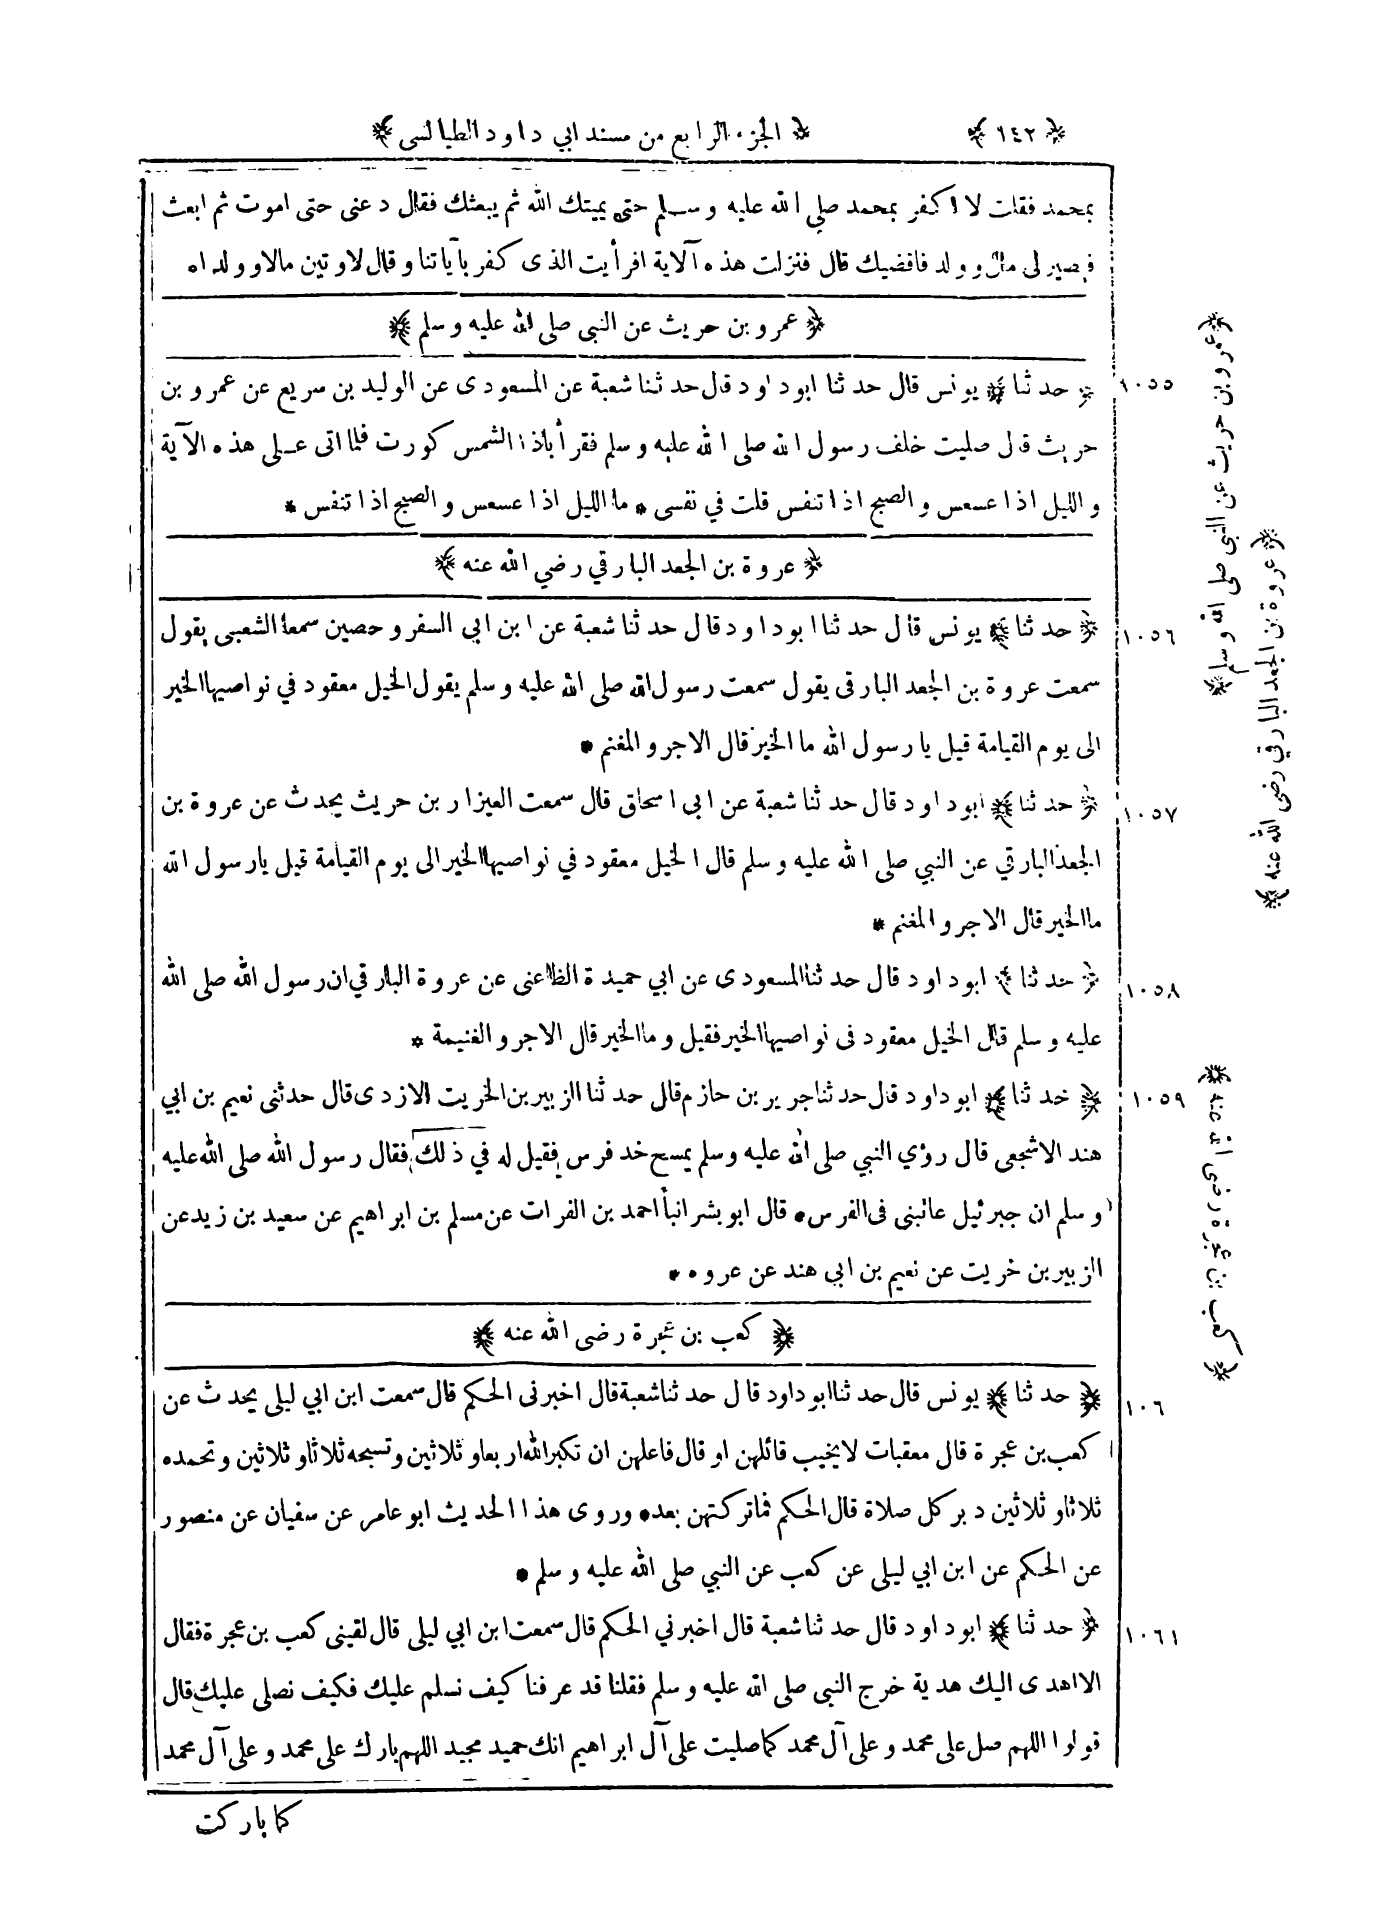 ﴿ ١٤٢ ﴾ ﴿ الجزء الرابع من مسند ابي داود الطيالسى ﴾
بمحمد فقلت لا اكفر بمحمد صلي الله عليه وسلم حتى يميتك الله ثم يبعثك فقال دعنى حتى اموت ثم ابعث
فيصير لى مال وولد فاقضيك قال فنزلت هذه آلاية افرأيت الذى كفر بآياتنا وقال لاوتين مالا وولدا ه
﴿ عمرو بن حريث عن النبى صلى الله عليه وسلم ﴾
١٠٥٥ ﴿ حدثنا ﴾ يونس قال حدثنا ابوداود قال حدثنا شعبة عن المسعودى عن الوليد بن سريع عن عمرو بن
حريث قال صليت خلف رسول الله صلى الله عليه وسلم فقرأ باذا الشمس كورت فلما اتى عـلى هذه الآية
و الليل اذا عسعس والصبح اذا تنفس قلت في نفسى * ما الليل اذا عسعس والصبح اذا تنفس *
﴿ عروة بن الجعد البارقي رضي الله عنه ﴾
١٠٥٦ ﴿ حدثنا ﴾ يونس قال حدثنا ابوداود قال حدثنا شعبة عن ابن ابي السفر وحصين سمعا الشعبى يقول
سمعت عروة بن الجعد البارقى يقول سمعت رسول الله صلى الله عليه وسلم يقول الخيل معقود في نواصيها الخير
الى يوم القيامة قيل يا رسول الله ما الخير قال الاجر والمغنم *
١٠٥٧ ﴿ حدثنا ﴾ ابوداود قال حدثنا شعبة عن ابى اسحاق قال سمعت العيزار بن حريث يحدث عن عروة بن
الجعد البارقي عن النبي صلى الله عليه وسلم قال الخيل معقود في نواصيها الخير الى يوم القيامة قيل يارسول الله
ما الخير قال الاجر والمغنم *
١٠٥٨ ﴿ حدثنا ﴾ ابوداود قال حدثنا المسعودى عن ابي حميدة الظاعنى عن عروة البارقي ان رسول الله صلى الله
عليه وسلم قال الخيل معقود فى نواصيها الخير فقيل وما الخير قال الاجر والغنيمة *
١٠٥٩ ﴿ حدثنا ﴾ ابوداود قال حدثنا جرير بن حازم قال حدثنا الزبير بن الخريت الازدى قال حدثنى نعيم بن ابي
هند الاشجعى قال رؤي النبي صلى الله عليه وسلم يمسح خد فرس فقيل له في ذلك فقال رسول الله صلى الله عليه
وسلم ان جبرئيل عاتبنى فى الفرس * قال ابوبشر انبأ احمد بن الفرات عن مسلم بن ابراهيم عن سعيد بن زيد عن
الزبير بن خريت عن نعيم بن ابى هند عن عروه *
﴿ كعب بن عجرة رضى الله عنه ﴾
١٠٦ ﴿ حدثنا ﴾ يونس قال حدثنا ابوداود قال حدثنا شعبة قال اخبرنى الحكم قال سمعت ابن ابي ليلى يحدث عن
كعب بن عجرة قال معقبات لا يخيب قائلهن او قال فاعلهن ان تكبر الله اربعا وثلاثين وتسبحه ثلاثا وثلاثين وتحمده
ثلاثا وثلاثين دبر كل صلاة قال الحكم فما تركتهن بعد * وروى هذا الحديث ابو عامر عن سفيان عن منصور
عن الحكم عن ابن ابي ليلى عن كعب عن النبي صلى الله عليه وسلم *
١٠٦١ ﴿ حدثنا ﴾ ابوداود قال حدثنا شعبة قال اخبرني الحكم قال سمعت ابن ابي ليلى قال لقينى كعب بن عجرة فقال
الا اهدى اليك هدية خرج النبى صلى الله عليه وسلم فقلنا قد عرفنا كيف نسلم عليك فكيف نصلى عليك قال
قولوا اللهم صل على محمد وعلى آل محمد كما صليت على آل ابراهيم انك حميد مجيد اللهم بارك على محمد وعلى آل محمد
كما باركت
﴿ عمرو بن حريث عن النبى صلى الله وسلم ﴾
﴿ عروة بن الجعد البارقي رضى الله عنه ﴾
﴿ كعب بن عجرة رضى الله عنه ﴾